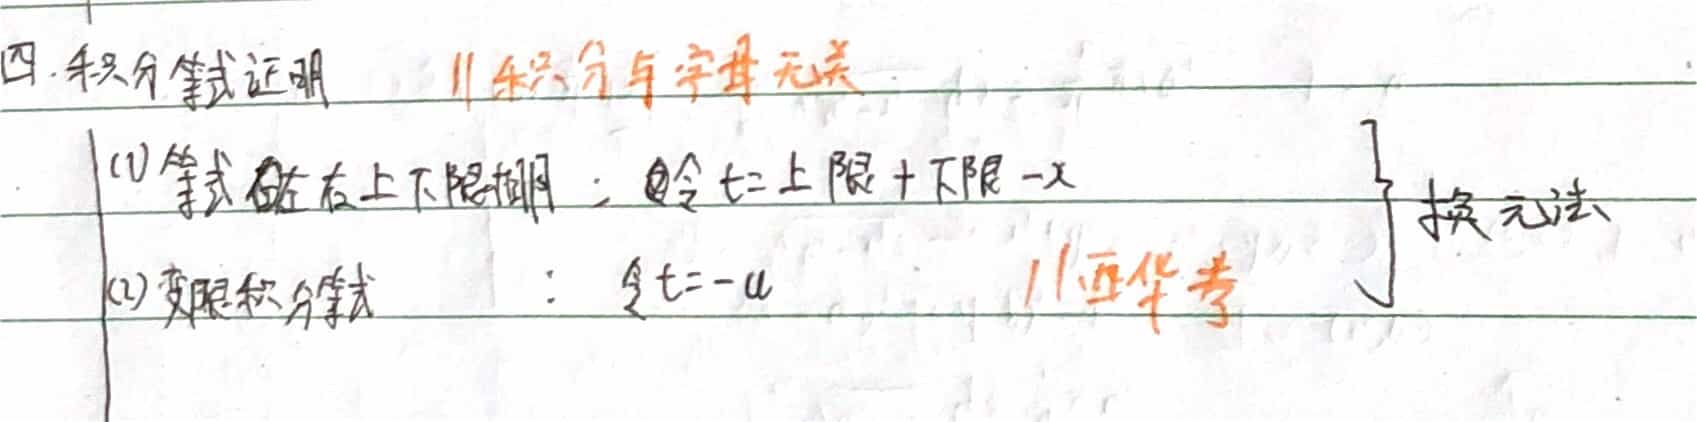 四.积分等式证明 //积分与字母无关
(1)等式左右上下限相同: 令t=上限+下限-x
(2)变限积分等式 : 令t=-u //西华考
换元法